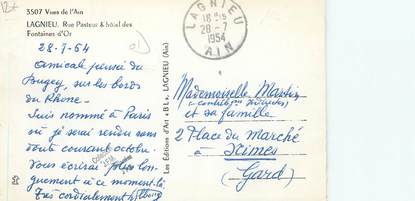 3507 Vues de l'Ain
LAGNIEU. Rue Pasteur & hôtel des
Fontaines d'Or
28-7-54
Amicale pensée du
Bugey, sur les bords
du Rhône.
Suis nommé à Paris
où je serai rendu sans
doute courant octobre.
Vous écrirai plus lon-
guement à ce moment-là.
Très cordialement
Les Éditions d'Art « B L » LAGNIEU (Ain)
LAGNIEU
18 H
28-7
1954
AIN
Mademoiselle Martin
(contrib. indirectes)
et sa famille
2 Place du marché
à Nîmes
(Gard)